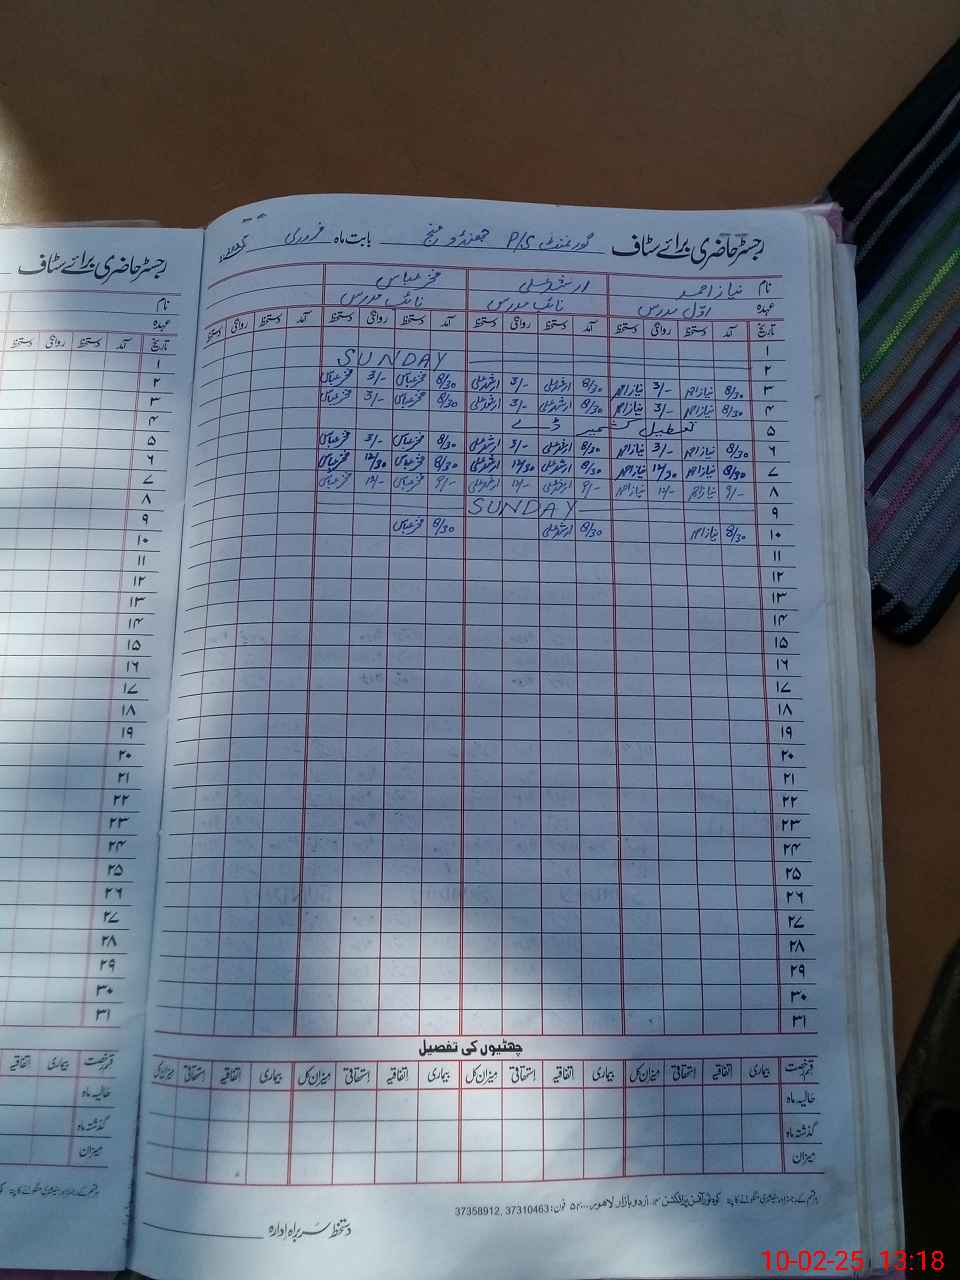 رجسٹر حاضری برائے سٹاف
نام
عہدہ
تاریخ آمد دستخط روانگی دستخط
۱
۲
۳
۴
۵
۶
۷
۸
۹
۱۰
۱۱
۱۲
۱۳
۱۴
۱۵
۱۶
۱۷
۱۸
۱۹
۲۰
۲۱
۲۲
۲۳
۲۴
۲۵
۲۶
۲۷
۲۸
۲۹
۳۰
۳۱
قسم رخصت بیماری اتفاقیہ
حالیہ ماہ
گذشتہ ماہ
میزان
رجسٹر حاضری برائے سٹاف گورنمنٹ P/S جھنڈو منج بابت ماہ فروری
نام نیاز احمد ارشد علی فخر عباس
عہدہ اوّل مدرس نائب مدرس نائب مدرس
تاریخ آمد دستخط روانگی دستخط آمد دستخط روانگی دستخط آمد دستخط روانگی دستخط آمد دستخط روانگی دستخط
۱
۲ SUNDAY
۳ 8/30 نیاز احمد 3/- نیاز احمد 8/30 ارشد علی 3/- ارشد علی 8/30 فخر عباس 3/- فخر عباس
۴ 8/30 نیاز احمد 3/- نیاز احمد 8/30 ارشد علی 3/- ارشد علی 8/30 فخر عباس 3/- فخر عباس
۵ تعطیل کشمیر ڈے
۶ 8/30 نیاز احمد 3/- نیاز احمد 8/30 ارشد علی 3/- ارشد علی 8/30 فخر عباس 3/- فخر عباس
۷ 8/30 نیاز احمد 12/30 نیاز احمد 8/30 ارشد علی 12/30 ارشد علی 8/30 فخر عباس 12/30 فخر عباس
۸ 9/- نیاز احمد 12/- نیاز احمد 9/- ارشد علی 12/- ارشد علی 9/- فخر عباس 12/- فخر عباس
۹ SUNDAY
۱۰ 8/30 نیاز احمد 8/30 ارشد علی 8/30 فخر عباس
۱۱
۱۲
۱۳
۱۴
۱۵
۱۶
۱۷
۱۸
۱۹
۲۰
۲۱
۲۲
۲۳
۲۴
۲۵
۲۶
۲۷
۲۸
۲۹
۳۰
۳۱
چھٹیوں کی تفصیل
قسم رخصت بیماری اتفاقیہ استحقاقی میزان کل بیماری اتفاقیہ استحقاقی میزان کل بیماری اتفاقیہ استحقاقی میزان کل بیماری اتفاقیہ استحقاقی میزان کل
حالیہ ماہ
گذشتہ ماہ
میزان
اردو بازار لاہور فون: 37310463, 37358912
دستخط سربراہ ادارہ
10-02-25 13:18